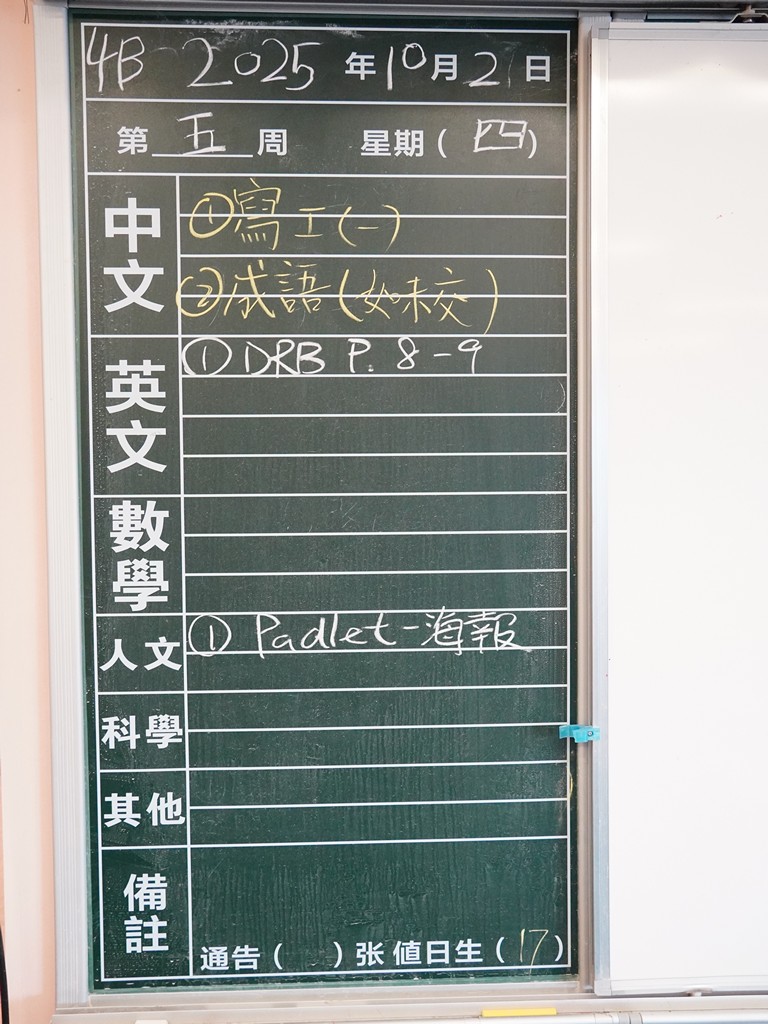 4B 2025 年 10 月 2 日
第 五 周 星期 ( 四 )
中文 ①寫工(一)
②成語(如未交)
英文 ① DRB P. 8-9
數學
人文 ① Padlet-海報
科學
其他
備註
通告 ( ) 张 值日生 ( 17 )